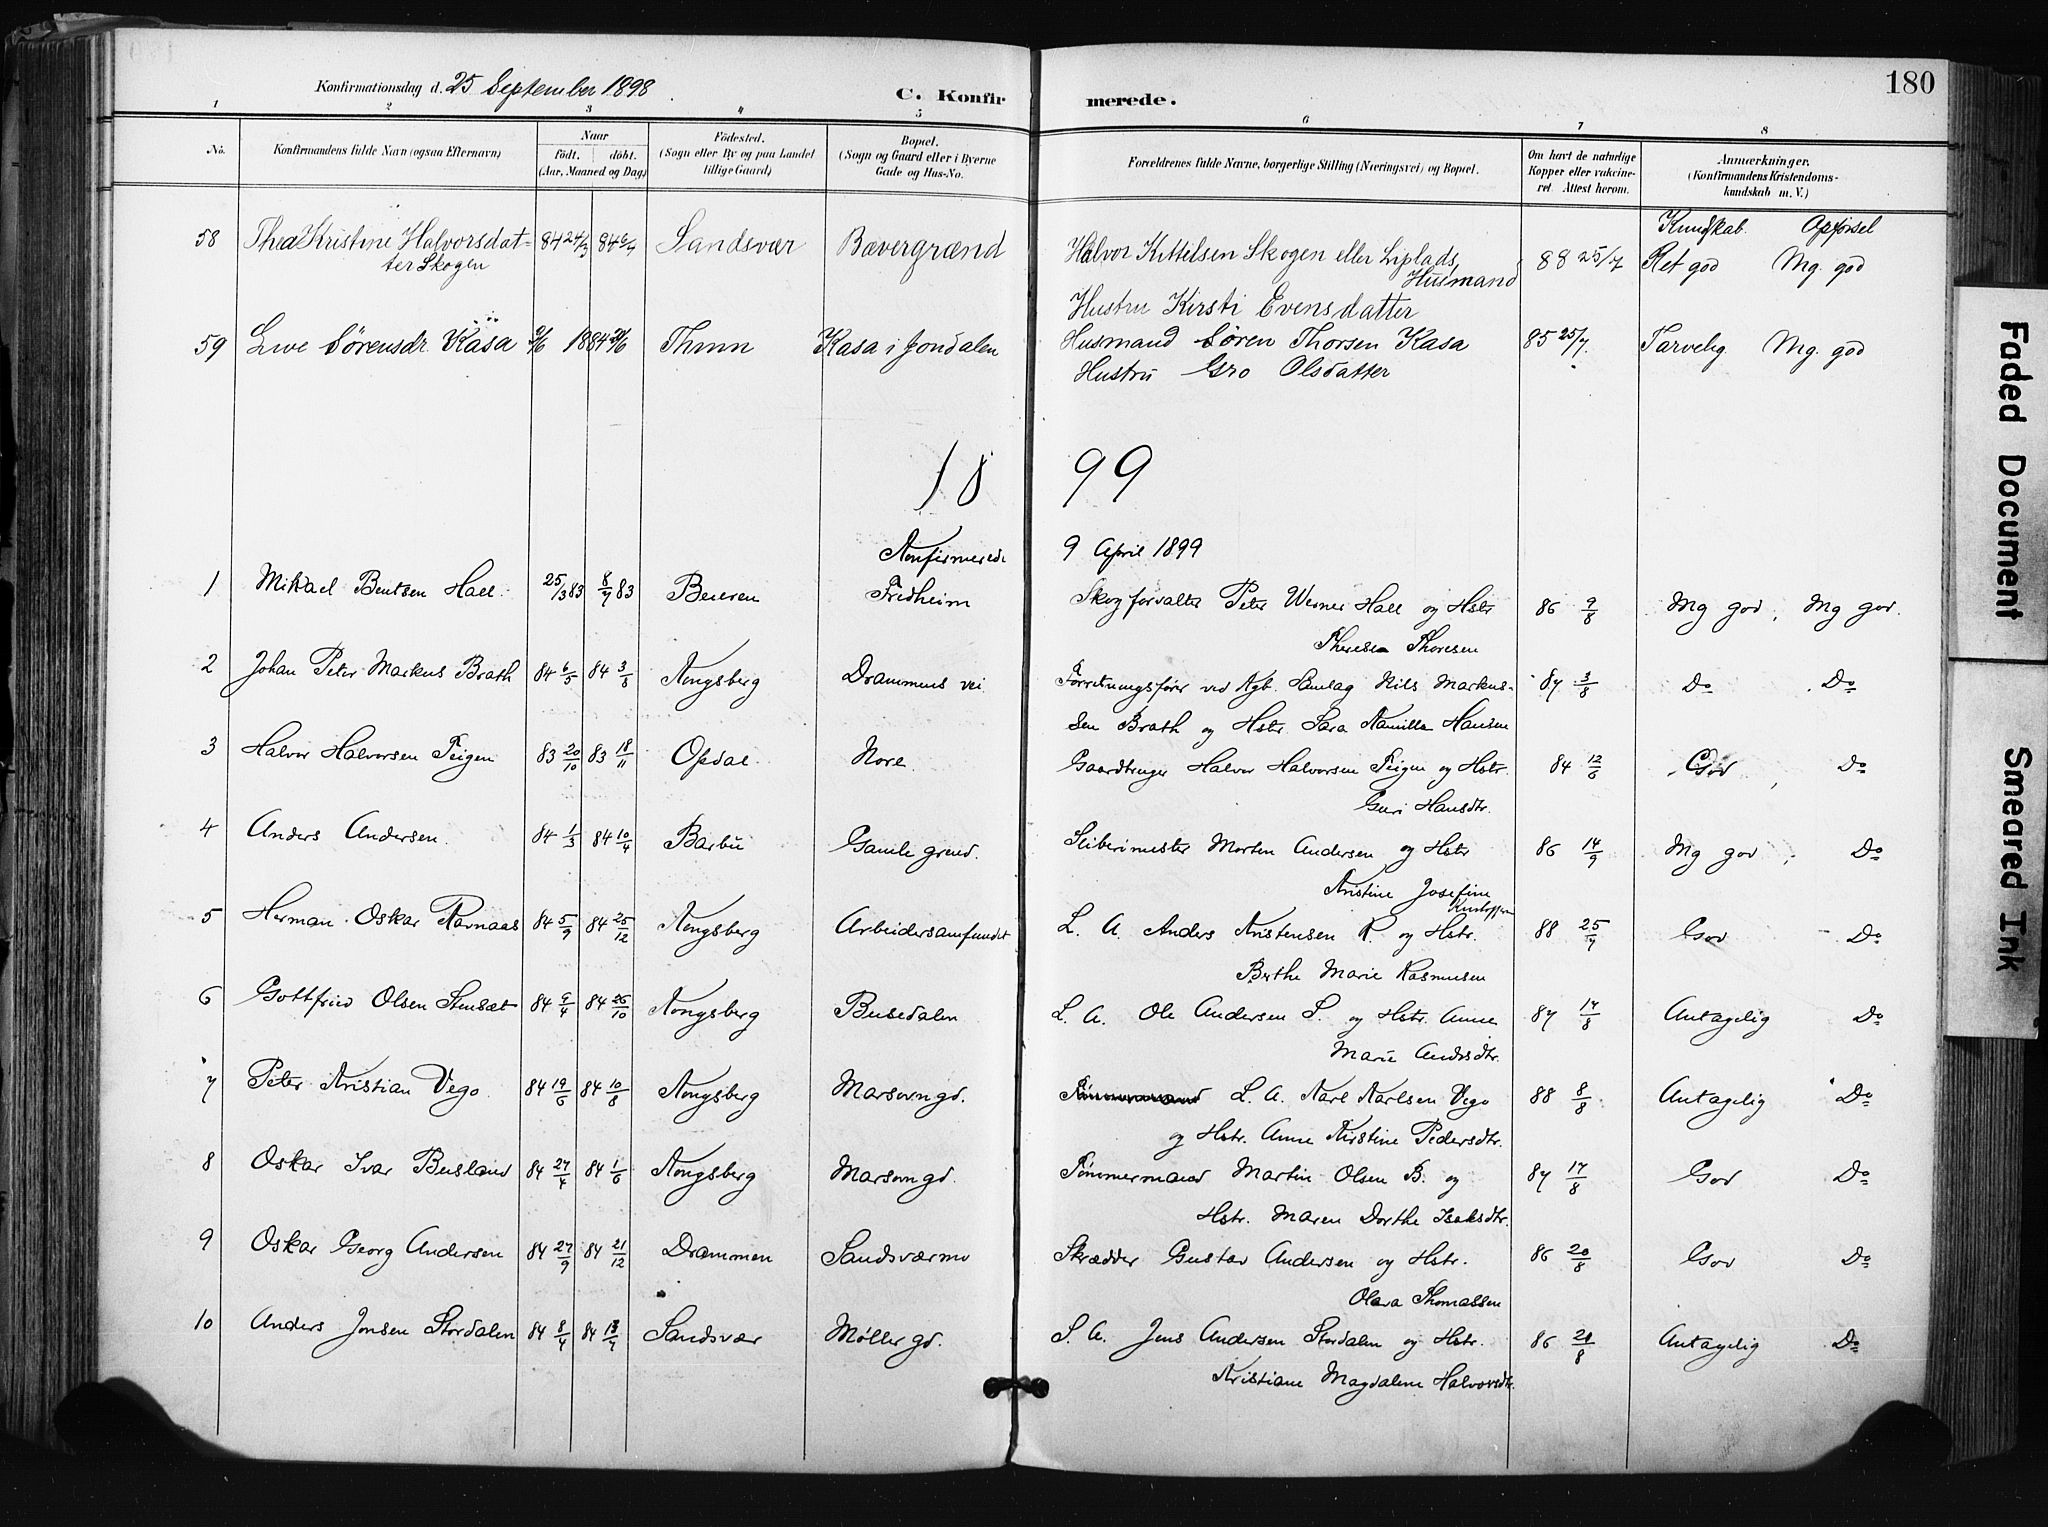 180
Konfirmationsdag d. 25 September 1898
C. Konfirmerede.
1 2 3 4 5 6 7 8
No. Konfirmandens fulde Navn (ogsaa Efternavn) Naar födt. döbt. (Aar, Maaned og Dag) Födested. (Sogn eller By og paa Landet tillige Gaard) Bopæl. (Sogn og Gaard eller i Byerne Gade og Hus-No. Forældrenes fulde Navne, borgerlige Stilling (Næringsvei) og Bopæl. Om havt de naturlige Kopper eller vakcineret. Attest herom. Anmærkninger. (Konfirmandens Kristendomskundskab m. V.)
Kundskab. Opførsel
58 Thea Kristine Halvorsdat- 84 24/3 84 6/4 Sandsvær Bævergrænd Halvor Kittelsen Skogen eller Liplads 88 25/7 Ret god Mg. god
ter Skogen Husmand
Hustru Kirsti Evensdatter
59 Live Sørensdr. Kåsa 1884 Thinn Kasa i Jondalen Husmand Søren Thorsen Kasa 85 25/7 Tarvelig Mg. god
Hustru Gro Olsdatter
18 99
Konfirmerede 9 April 1899
1 Mikael Bentsen Hall 25/3 83 8/7 83 Beieren Fredheim Skogforvalter Peter Werner Hall og Hstr 86 9/8 Mg god, Mg god.
Therese Thoresen
2 Johan Peter Markus Brath 84 6/5 84 3/8 Kongsberg Drammens vei Forretningsfører ved Kgb. Samlag Nils Markus- 87 3/8 Do Do
sen Brath og Hstr. Sara Kamilla Hansen
3 Halvor Halvorsen Teigen 83 20/10 83 18/11 Opdal Nore Gaardbruger Halvor Halvorsen Teigen og Hstr. 84 12/6 God, Do
Guri Hansdtr.
4 Anders Andersen 84 1/3 84 10/4 Barbu Gamle grend. Sliberimester Morten Andersen og Hstr 86 14/9 Mg god, Do
Kristine Josefine
Kristoffersen
5 Herman Oskar Ravnaas 84 5/9 84 25/12 Kongsberg Arbeidersamfundet L. A. Anders Kristensen R. og Hstr. 88 25/7 God Do
Berthe Marie Rasmusen
6 Gottfried Olsen Stensæt 84 9/4 84 26/10 Kongsberg Busedalen L. A. Ole Andersen S. og Hstr. Anne 87 17/8 Antagelig Do
Marie Andrsdtr.
7 Peter Kristian Vego 84 19/6 84 10/8 Kongsberg Marsovngd. Tømmermand L. A. Karl Karlsen Vego 88 8/8 Antagelig Do
og Hstr. Anne Kirstine Pedersdtr.
8 Oskar Ivar Busland 84 27/4 84 1/6 Kongsberg Marsovngd. Tømmermand Martin Olsen B. og 87 17/8 God Do
Hstr. Maren Dorthe Isaksdtr.
9 Oskar Georg Andersen 84 27/9 84 21/12 Drammen Sandsværmo Skrædder Gustav Andersen og Hstr. 86 20/8 God Do
Olava Thomassen
10 Anders Jensen Stordalen 84 8/4 84 13/7 Sandsvær Møllergd. S. A. Jens Andersen Stordalen og Hstr. 86 20/8 Antagelig Do
Kristiane Magdalene Halvorsdtr.
Faded Document
Smeared Ink